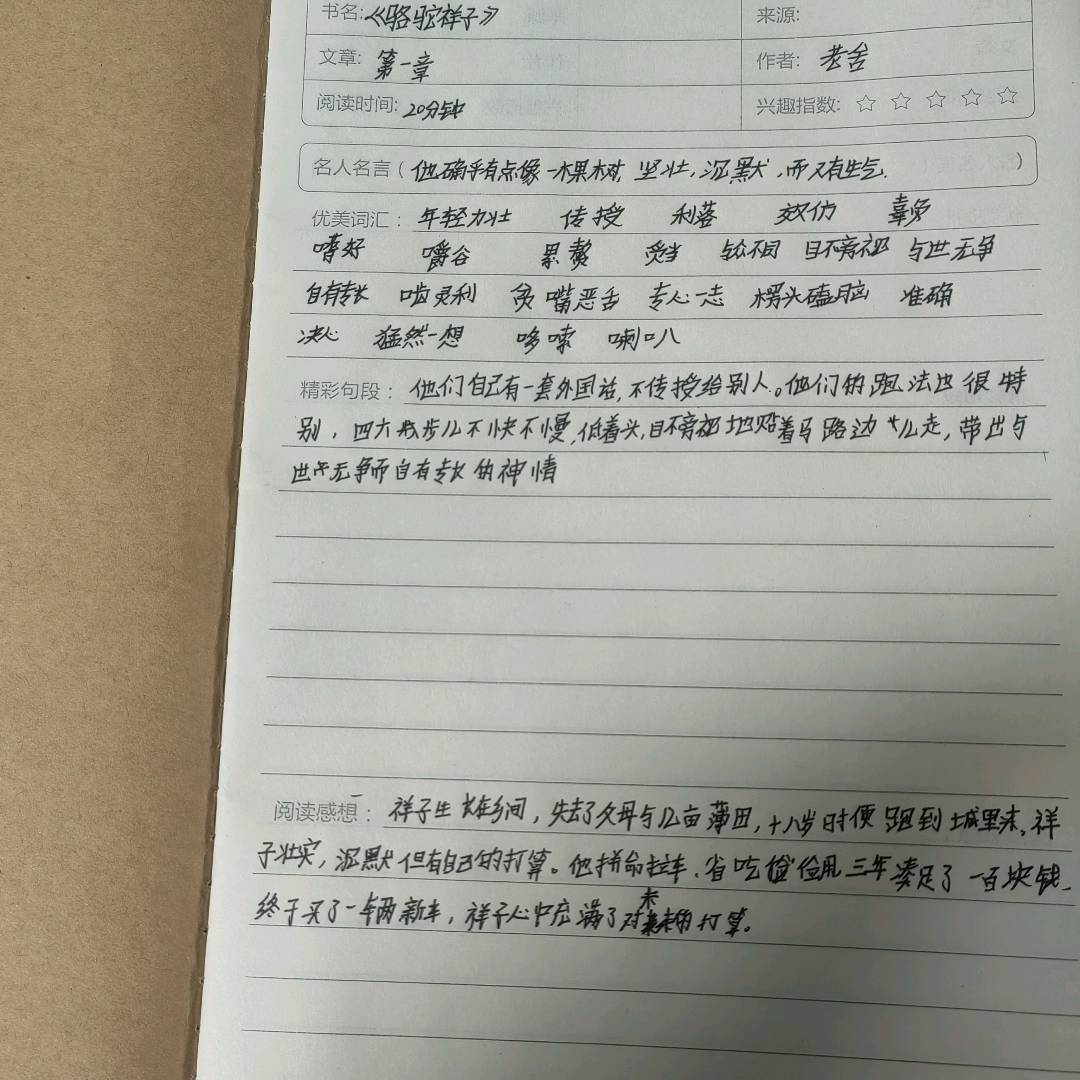 书名:《骆驼祥子》 来源:
文章: 第一章 作者: 老舍
阅读时间: 20分钟 兴趣指数: ☆ ☆ ☆ ☆ ☆
名人名言 ( 他确乎有点像一棵树, 坚壮, 沉默, 而又有生气. )
优美词汇: 年轻力壮 传授 利落 效仿
嗜好 嚼谷 累赘 与众不同 目不旁视 与世无争
自有专长 嘴恶舌 专心一志 楞头磕脑 准确
决心 猛然一想 哆嗦 喇叭
精彩句段: 他们自己有一套外国话, 不传授给别人。他们的跑法也很特
别, 四六步儿不快不慢, 低着头, 目不旁视地贴着马路边儿走, 带出与
世无争而自有专长的神情
阅读感想: 祥子生长在乡间, 失去了父母与几亩薄田, 十八岁时便跑到城里来。祥
子壮实, 沉默但有自己的打算。他拼命拉车, 省吃俭用三年凑足了一百块钱,
终于买了一辆新车, 祥子心中充满了对未来的打算。